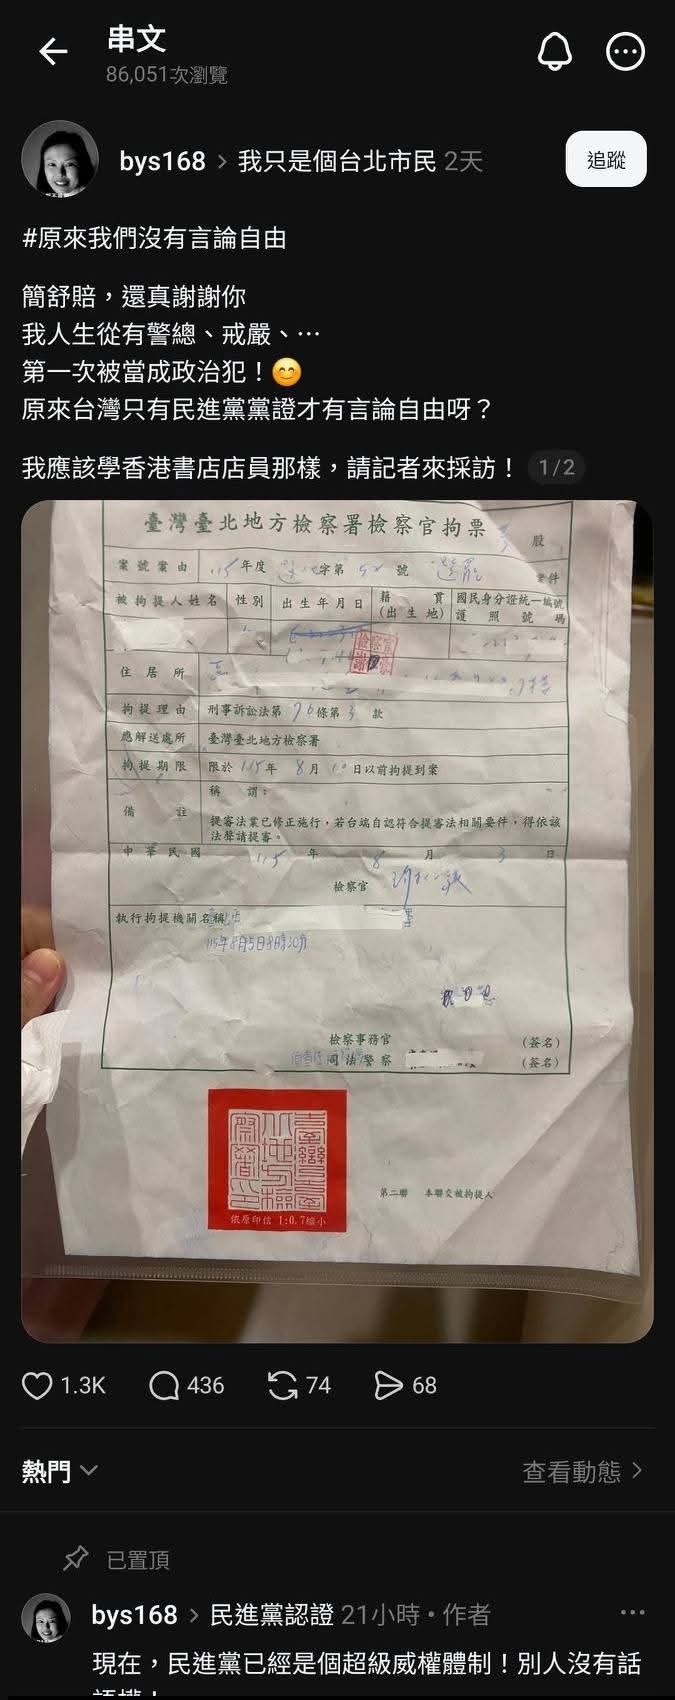 串文
86,051次瀏覽
bys168 > 我只是個台北市民 2天
追蹤
#原來我們沒有言論自由
簡舒賠，還真謝謝你
我人生從有警總、戒嚴、…
第一次被當成政治犯！😊
原來台灣只有民進黨黨證才有言論自由呀？
我應該學香港書店店員那樣，請記者來採訪！ 1/2
臺灣臺北地方檢察署檢察官拘票 股
案號案由 115年度 字第 52 號 選罷 案件
被拘提人姓名 性別 出生年月日 籍貫(出生地) 國民身分證統一編號 護照號碼
檢察官
住居所
拘提理由 刑事訴訟法第 76條第 3 款
應解送處所 臺灣臺北地方檢察署
拘提期限 限於 115年 8月 10日以前拘提到案
稱謂：
備註 提審法業已修正施行，若台端自認符合提審法相關要件，得依該
法聲請提審。
中華民國 115 年 8 月 3 日
檢察官
執行拘提機關名稱
115年8月5日8時20分
檢察事務官 (簽名)
司法警察 (簽名)
第二聯 本聯交被拘提人
依原印信 1:0.7縮小
1.3K 436 74 68
熱門 查看動態 >
已置頂
bys168 > 民進黨認證 21小時 • 作者
現在，民進黨已經是個超級威權體制！別人沒有話
語權！